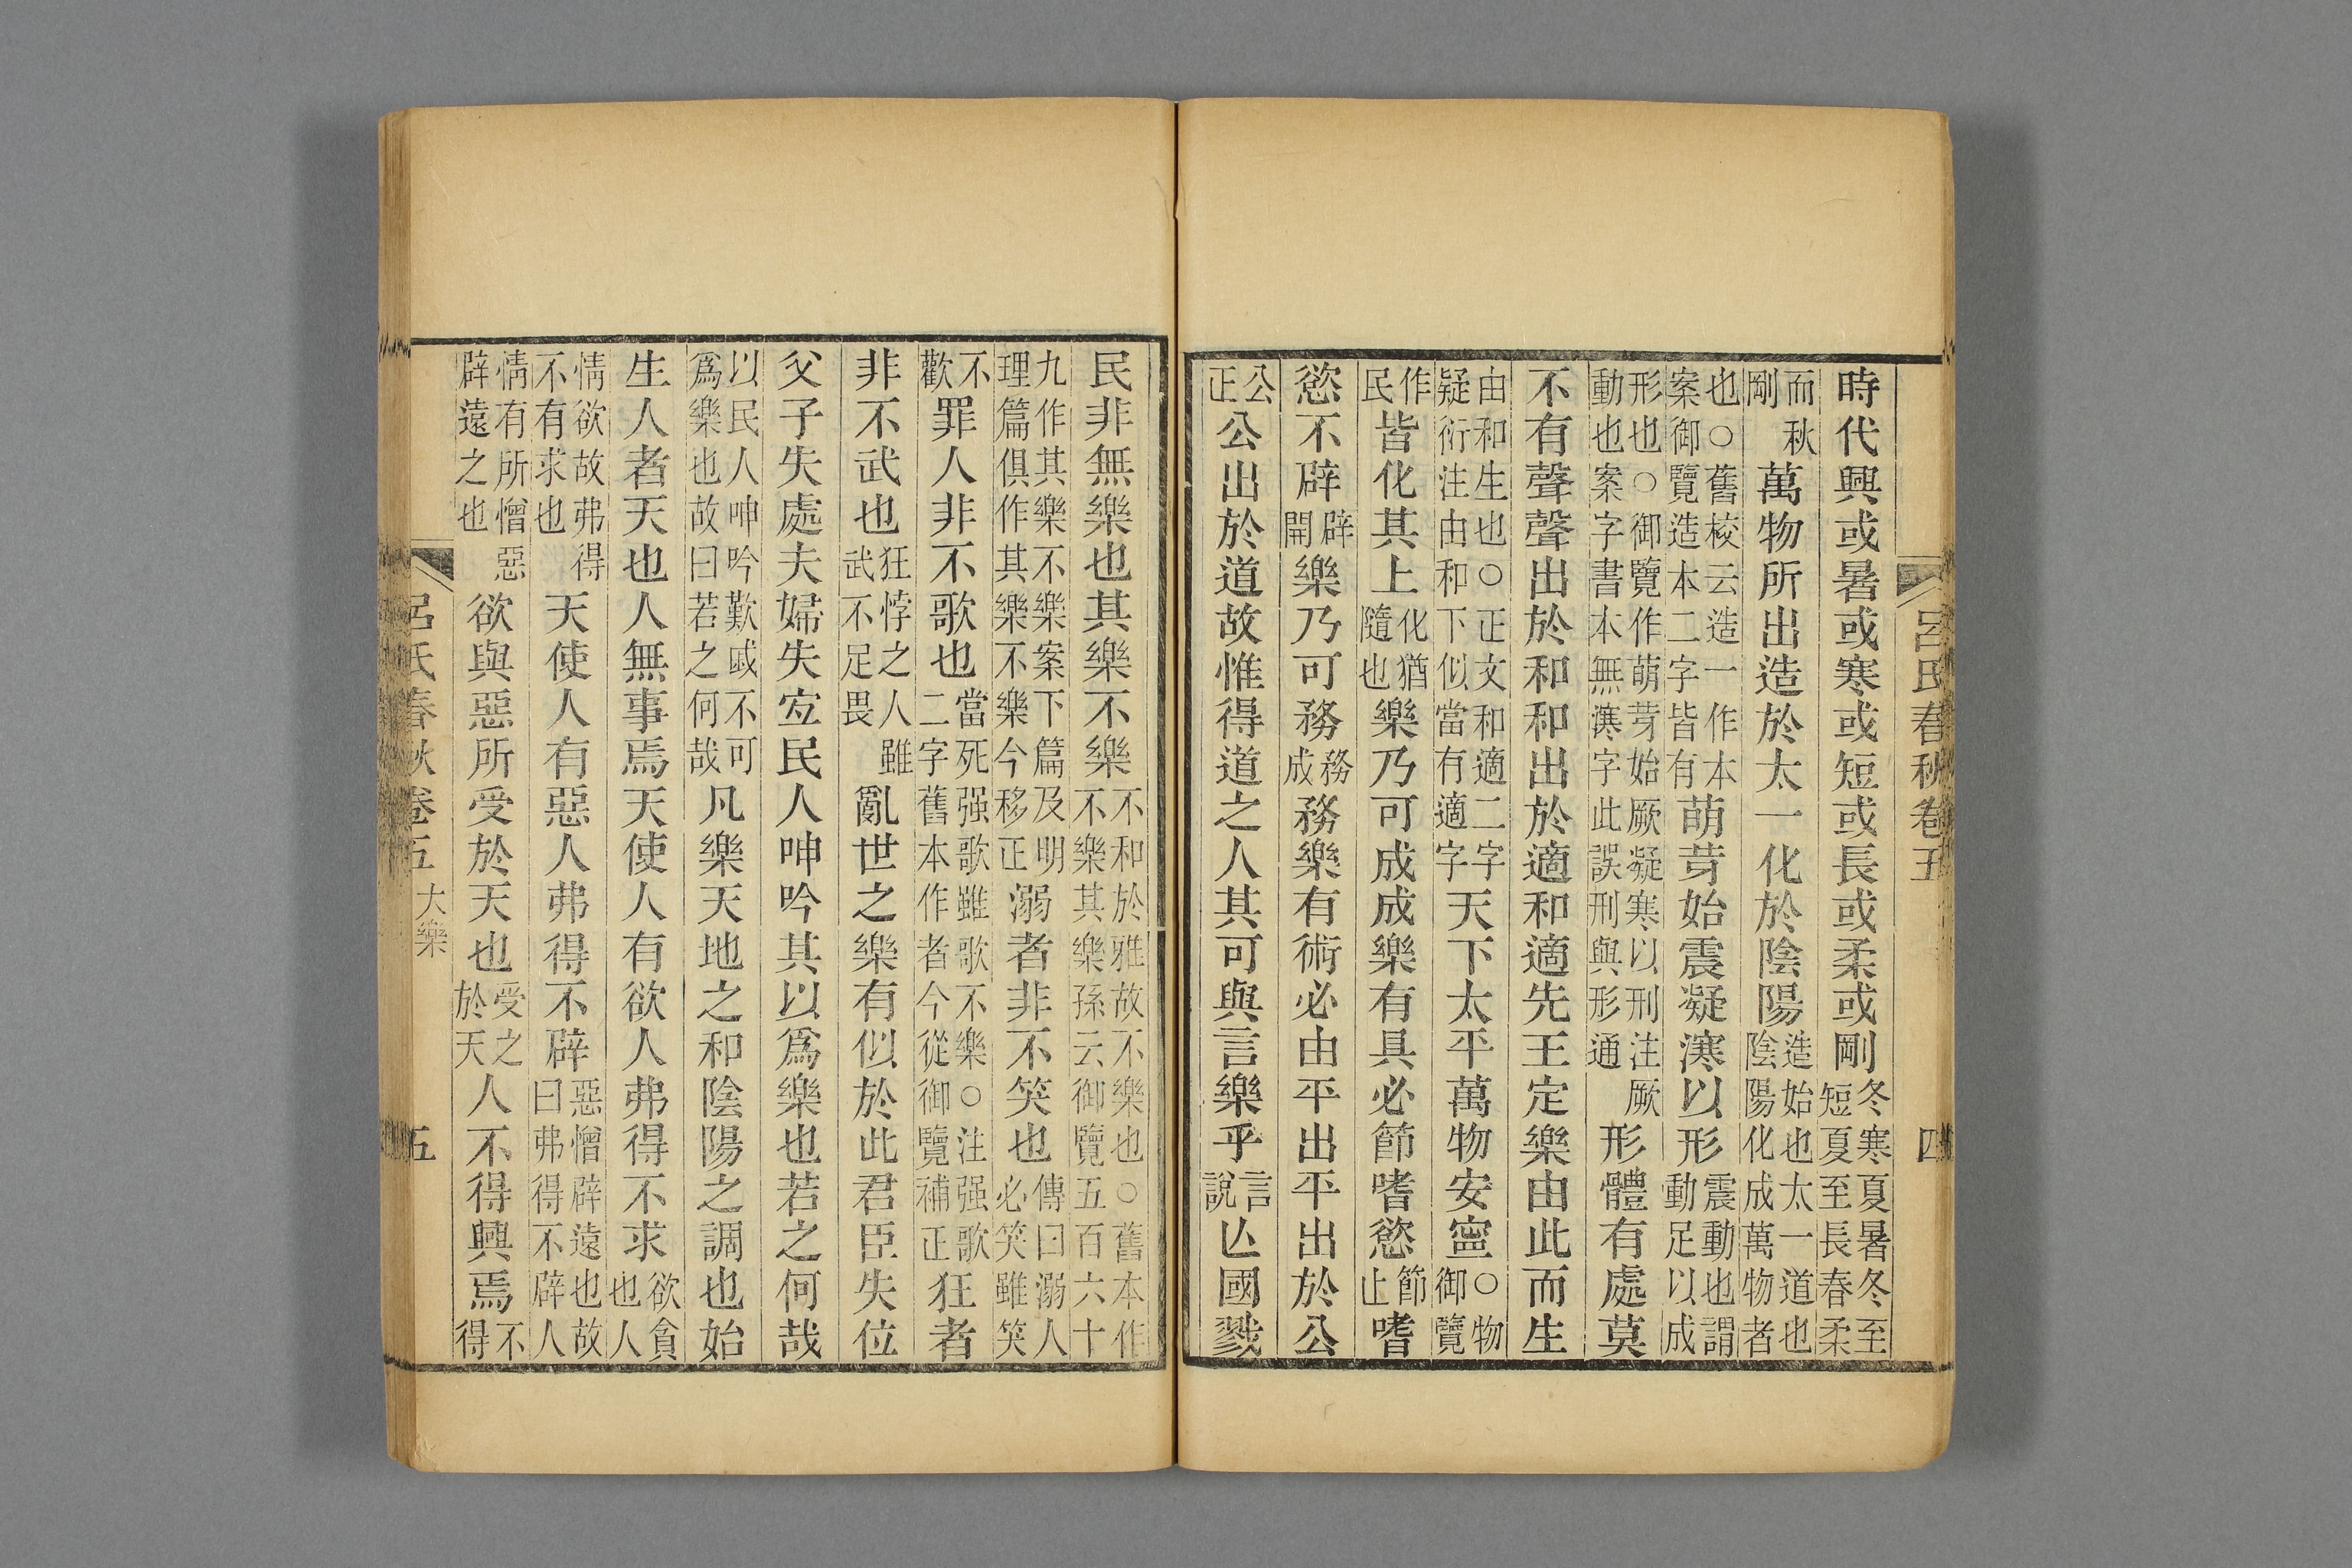 呂氏春秋卷五 四
時代興或暑或寒或短或長或柔或剛冬寒夏暑冬至短夏至長春柔
而秋剛萬物所出造於太一化於陰陽造始也太一道也陰陽化成萬物者
也○舊校云造一作本案御覽造本二字皆有萌芽始震凝㵉以形震動也謂動足以成
形也○御覽作萌芽始厥凝寒以刑注厥動也案字書本無㵉字此誤刑與形通形體有處莫
不有聲聲出於和和出於適和適先王定樂由此而生
由和生也○正文和適二字疑衍注由和下似當有適字天下太平萬物安寍○物御覽
作民皆化其上化猶隨也樂乃可成成樂有具必節嗜慾節止嗜
慾不辟辟開樂乃可務務成務樂有術必由平出平出於公
公正公出於道故惟得道之人其可與言樂乎言說亾國戮
民非無樂也其樂不樂不和於雅故不樂也○舊本作不樂其樂孫云御覽五百六十
九作其樂不樂案下篇及明理篇俱作其樂不樂今移正溺者非不笑也傳曰溺人必笑雖笑
不歡罪人非不歌也當死强歌雖歌不樂○注强歌二字舊本作者今從御覽補正狂者
非不武也狂悖之人雖武不足畏亂世之樂有似於此君臣失位
父子失處夫婦失宐民人呻吟其以爲樂也若之何哉
以民人呻吟歎戚不可爲樂也故曰若之何哉凡樂天地之和陰陽之調也始
生人者天也人無事焉天使人有欲人弗得不求欲貪也人
情欲故弗得不有求也天使人有惡人弗得不辟惡憎辟遠也故曰弗得不辟人
情有所憎惡辟遠之也欲與惡所受於天也受之於天人不得興焉不得
呂氏春秋卷五 大樂 五